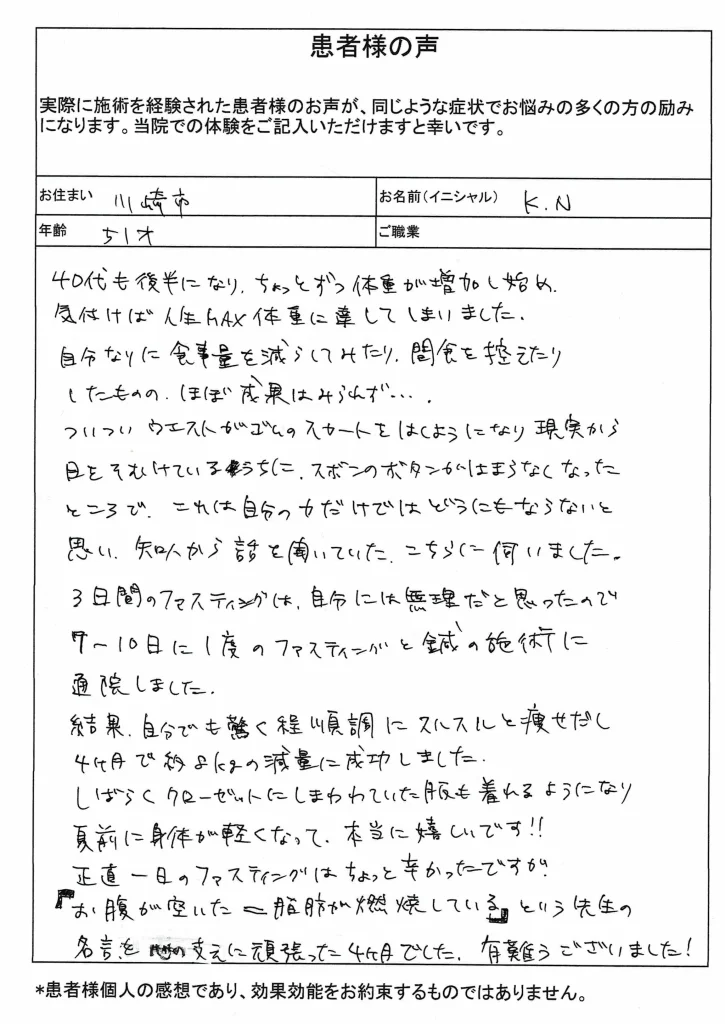 患者様の声
実際に施術を経験された患者様のお声が、同じような症状でお悩みの多くの方の励み
になります。当院での体験をご記入いただけますと幸いです。
お住まい 川崎市
お名前(イニシャル) K.N
年齢 51才
ご職業
40代も後半になり、ちょっとずつ体重が増加し始め、
気付けば人生MAX体重に達してしまいました。
自分なりに食事量を減らしてみたり、間食を控えたり
したものの、ほぼ成果はみられず…。
ついついウエストがゴムのスカートをはくようになり現実から
目をそむけているうちに、ズボンのボタンがはまらなくなった
ところで、これは自分の力だけではどうにもならないと
思い、知人から話を聞いていた、こちらに伺いました。
3日間のファスティングは、自分には無理だと思ったので
7〜10日に1度のファスティングと鍼の施術に
通院しました。
結果、自分でも驚く程順調にスルスルと痩せだし
4ヶ月で約8kgの減量に成功しました。
しばらくクローゼットにしまわれていた服も着れるようになり
夏前に身体が軽くなって、本当に嬉しいです!!
正直一日のファスティングはちょっと辛かったですが、
『お腹が空いた=脂肪が燃焼している』という先生の
名言を支えに頑張った4ヶ月でした。有難うございました!
*患者様個人の感想であり、効果効能をお約束するものではありません。